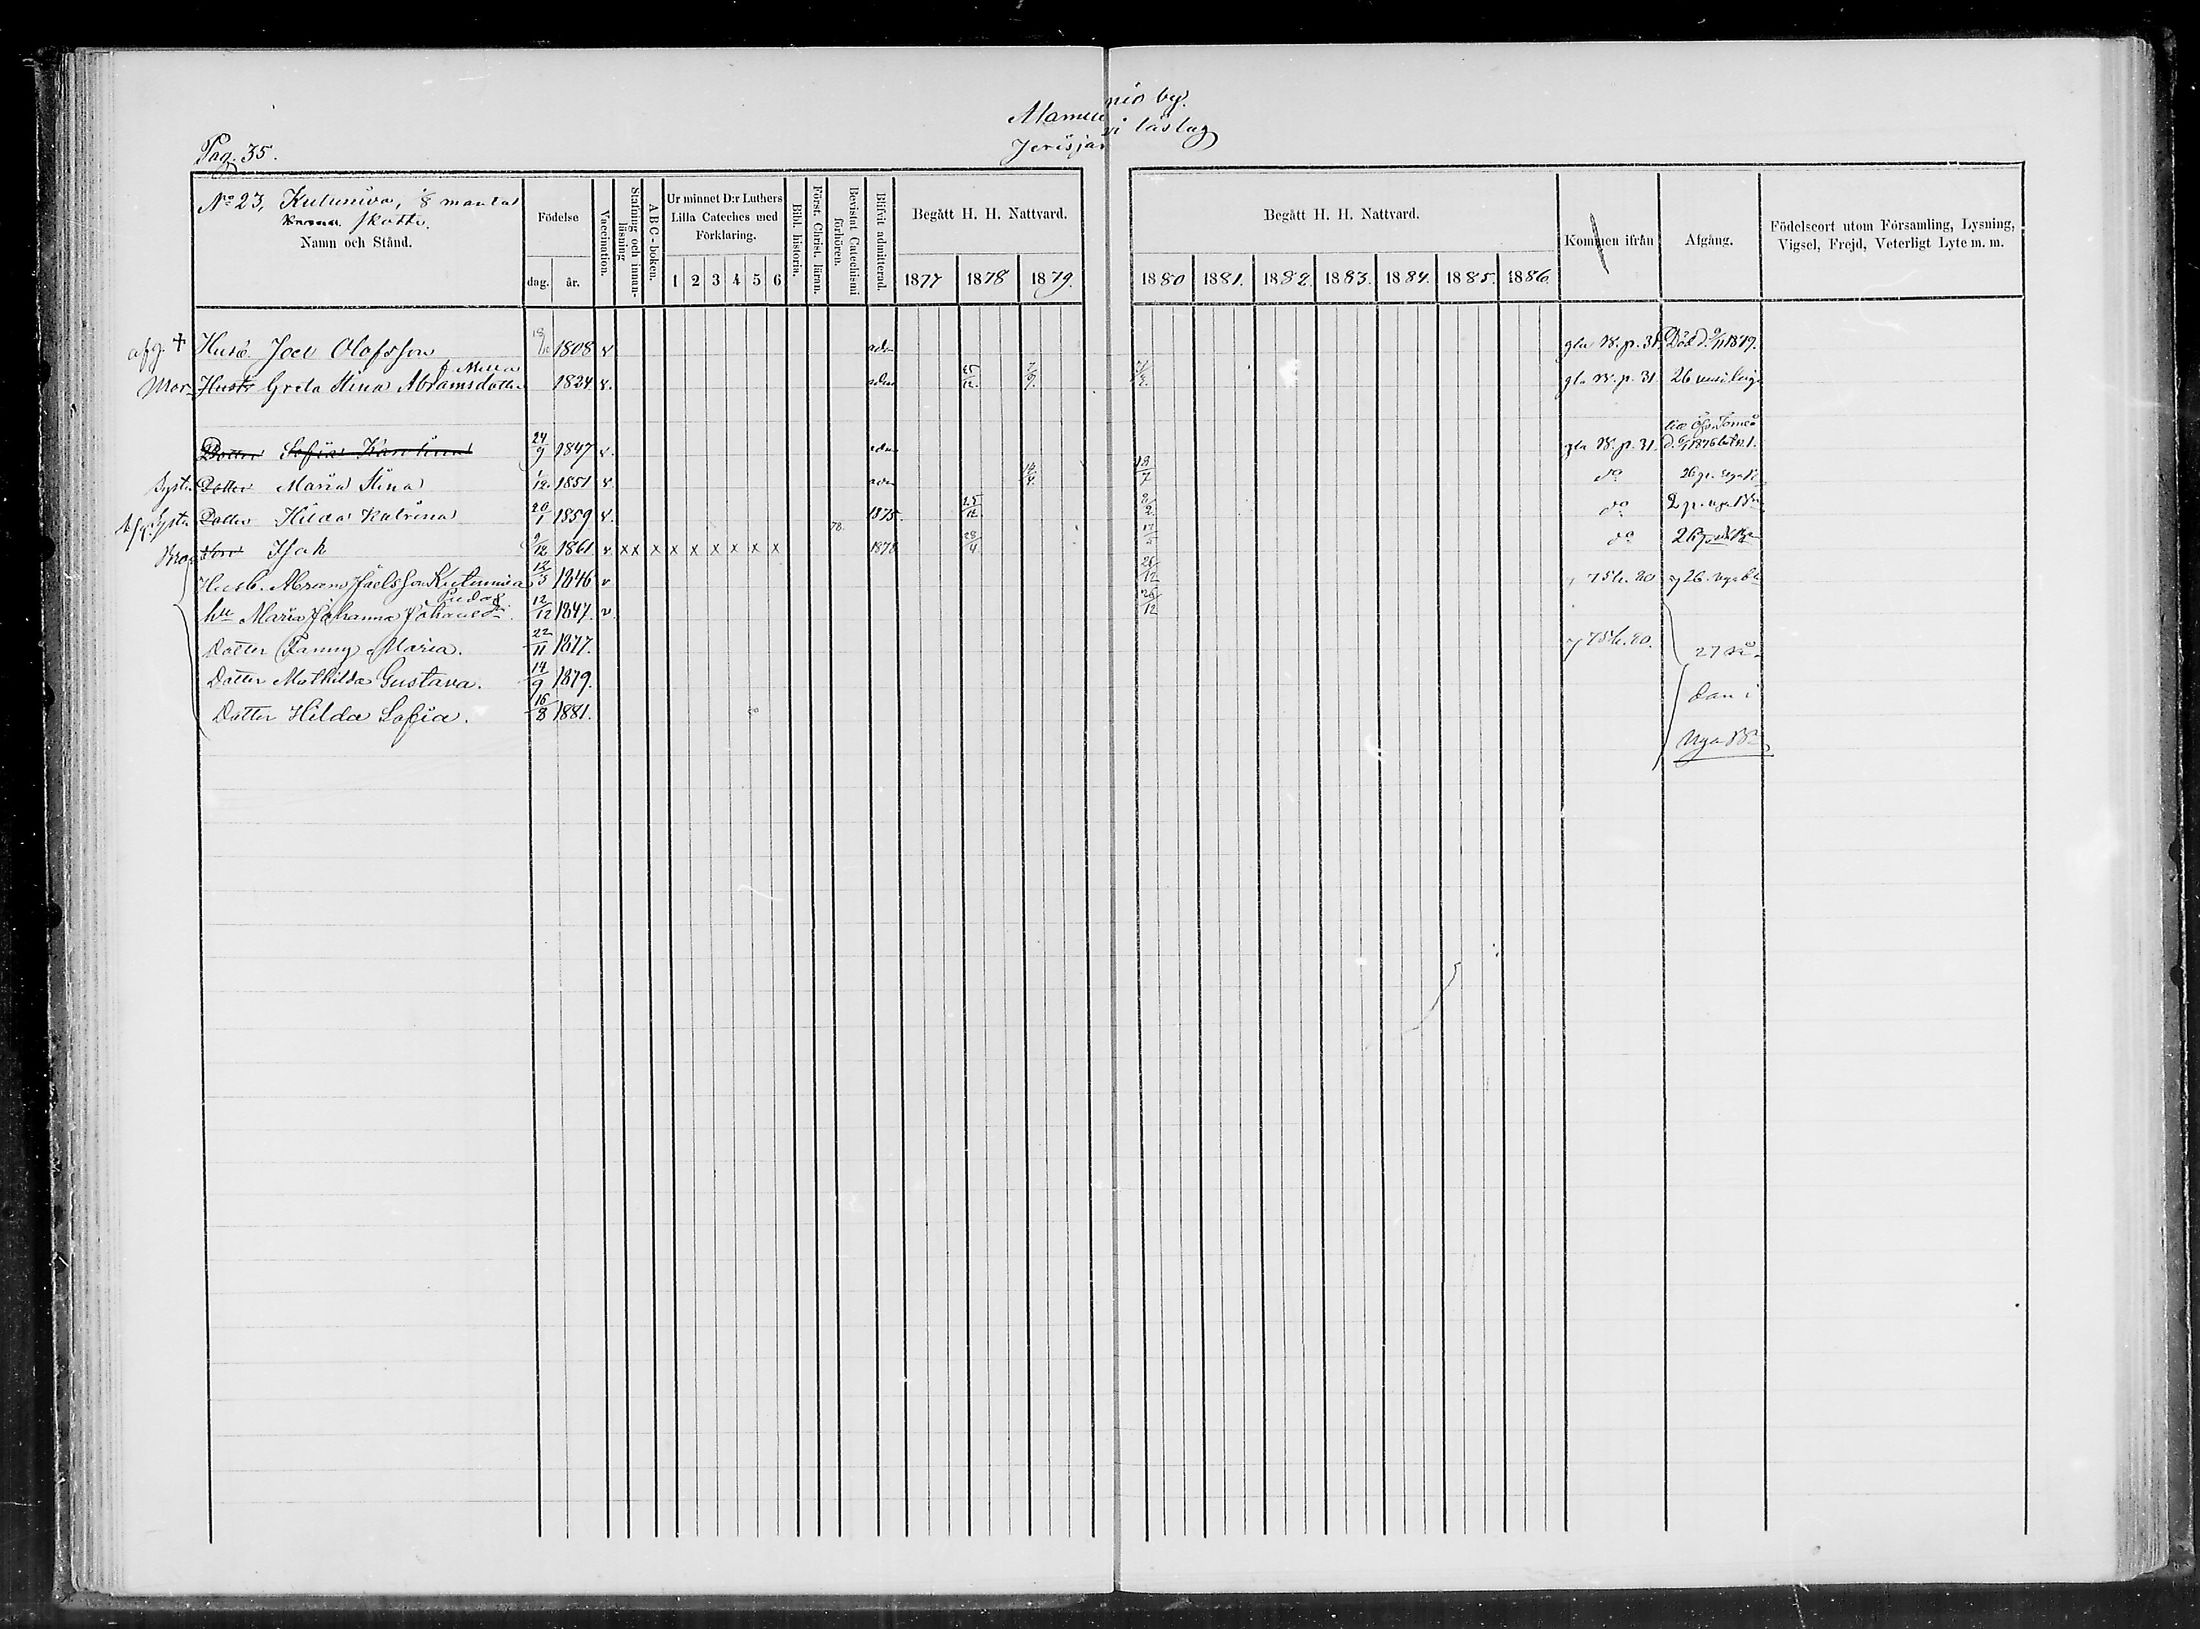 Pag. 35.
Alamuonio by.
Jerisjärvi läslag
No 23, Kutuniva, 1/8 mantal
Krono skatte.
Namn och Stånd.
Födelse
dag. år.
Vaccination.
Stafning och innanläsning
ABC-boken.
Ur minnet D:r Luthers Lilla Cateches med Förklaring.
1 2 3 4 5 6
Bibl. historia.
Först. Christ. läran.
Bevistat Catechismi förhören.
Blifvit admitterad.
Begått H. H. Nattvard.
1877 1878 1879.
Begått H. H. Nattvard.
1880 1881. 1882. 1883. 1884. 1885. 1886.
Kommen ifrån
Afgång.
Födelseort utom Församling, Lysning, Vigsel, Frejd, Veterligt Lyte m. m.
afg. + Husb. Joel Olofsson 18/10 1808 v. adm gla B. p. 31. Död d. 9/11 1879.
Mor Hustr Greta Stina Abramsdotter 1824 v. adm 25/12. gla B. p. 31. 26
Dotter Sofia Karolina 24/9 1847 v. adm gla B. p. 31.
Syster Dotter Maria Stina 1/12. 1851 v. adm 18/7 do 26 p. nya B
Afg. Syster Dotter Hilda Katrina 20/1 1859 v. 1875. 25/12. 2/2 do 2 p. nya Bn
Bror Son Isak 9/12 1861 v. x x x x x x x x x 78. 1878 28/4 17/5 do 26 p.
Husb. Abram Joelsson Kutuniva 12/5 1846 v 26/12 26. nya b
hu Maria Johanna Johansdr. 12/12 1847. v 26/12
Dotter Fanny Maria. 22/11 1877.
27 si-
Dotter Mathilda Gustava. 14/9 1879.
dan i
Dotter Hilda Sofia. 16/8 1881.
Nya Bn